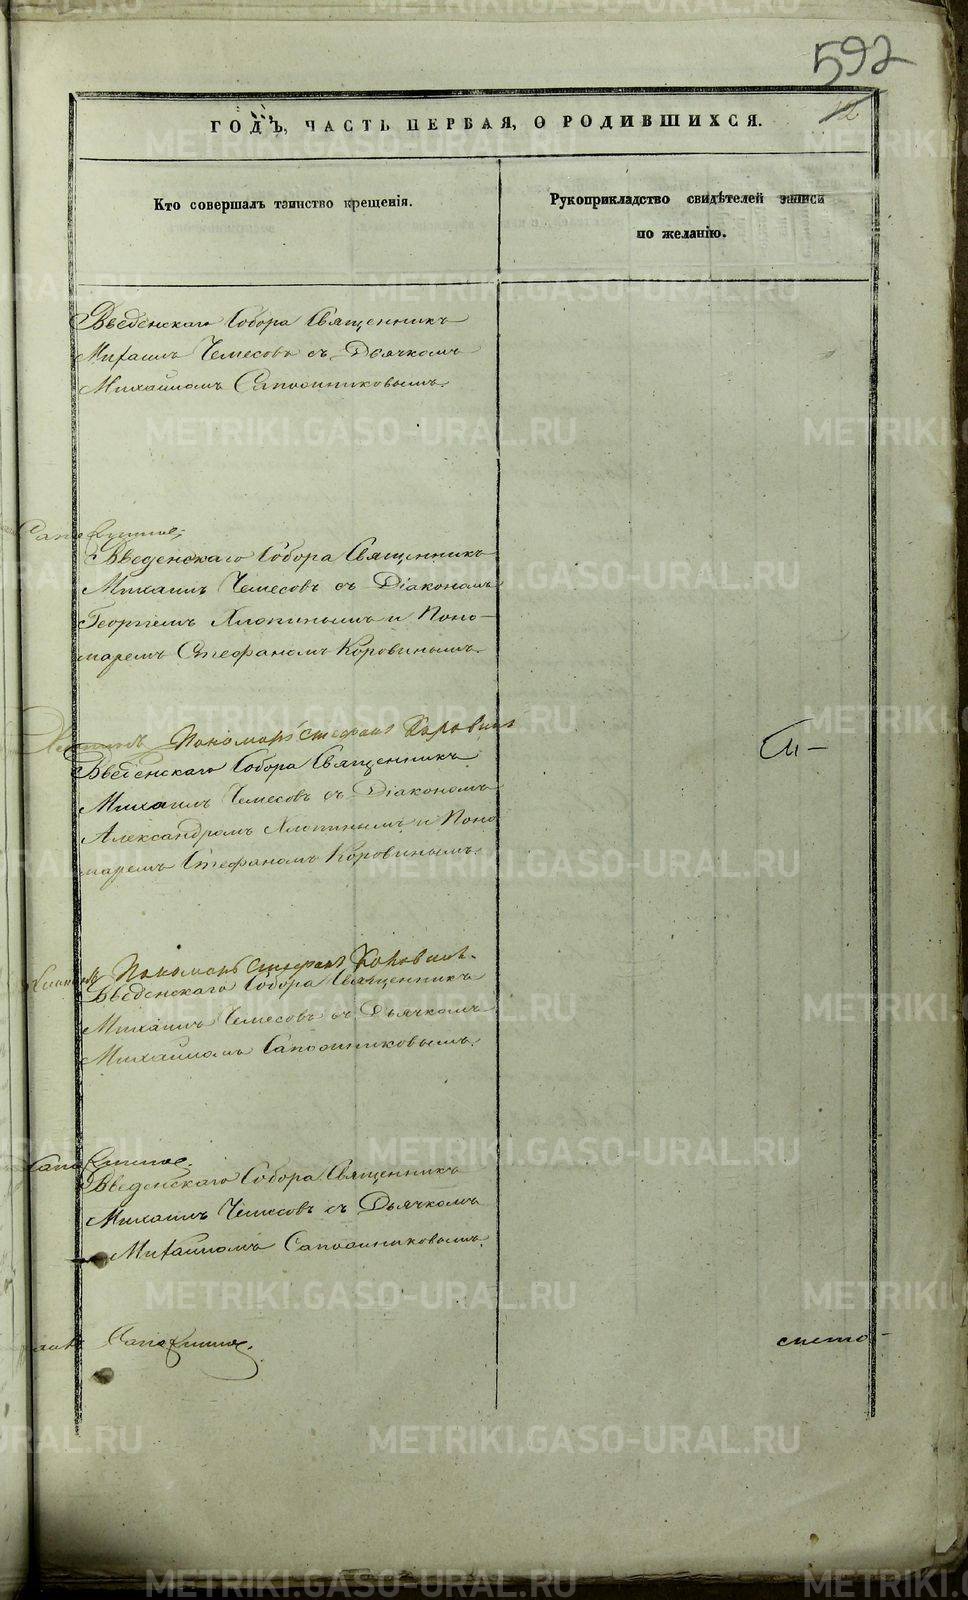 592
12
ГОДЪ, ЧАСТЬ ПЕРВАЯ, О РОДИВШИХСЯ.
Кто совершалъ таинство крещенія.
Рукоприкладство свидѣтелей записи
по желанію.
Введенскаго Собора Священникъ
Михаилъ Чемесовъ съ Дьячкомъ
Михаиломъ Сапожниковымъ.
Введенскаго Собора Священникъ
Михаилъ Чемесовъ съ Діакономъ
Георгіемъ Хлопинымъ и Поно-
маремъ Стефаномъ Коровинымъ.
Пономарь Стефанъ Коровинъ
Введенскаго Собора Священникъ
Михаилъ Чемесовъ съ Діакономъ
Александромъ Хлопинымъ и Поно
маремъ Стефаномъ Коровинымъ.
Пономарь Стефанъ Коровинъ.
Введенскаго Собора Священникъ
Михаилъ Чемесовъ съ Дьячкомъ
Михаиломъ Сапожниковымъ.
Введенскаго Собора Священникъ
Михаилъ Чемесовъ съ Дьячкомъ
Михаиломъ Сапожниковымъ.
METRIKI.GASO-URAL.RU